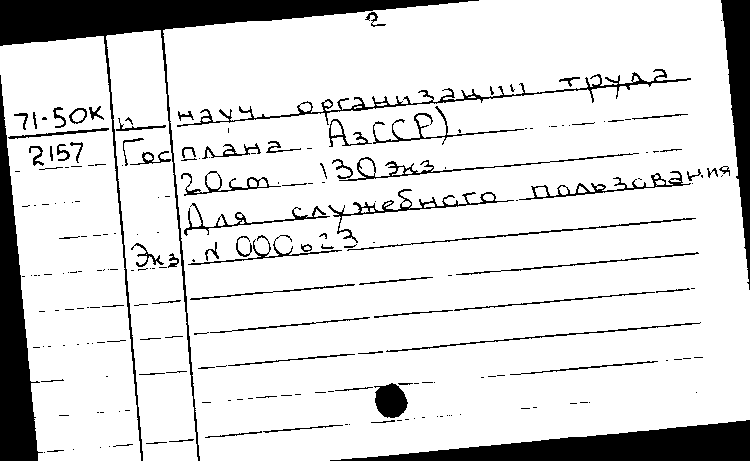 2
71-50К и науч. организации труда
2157 Госплана АзССР).
20см 130экз.
Для служебного пользования.
Экз. № 000623.